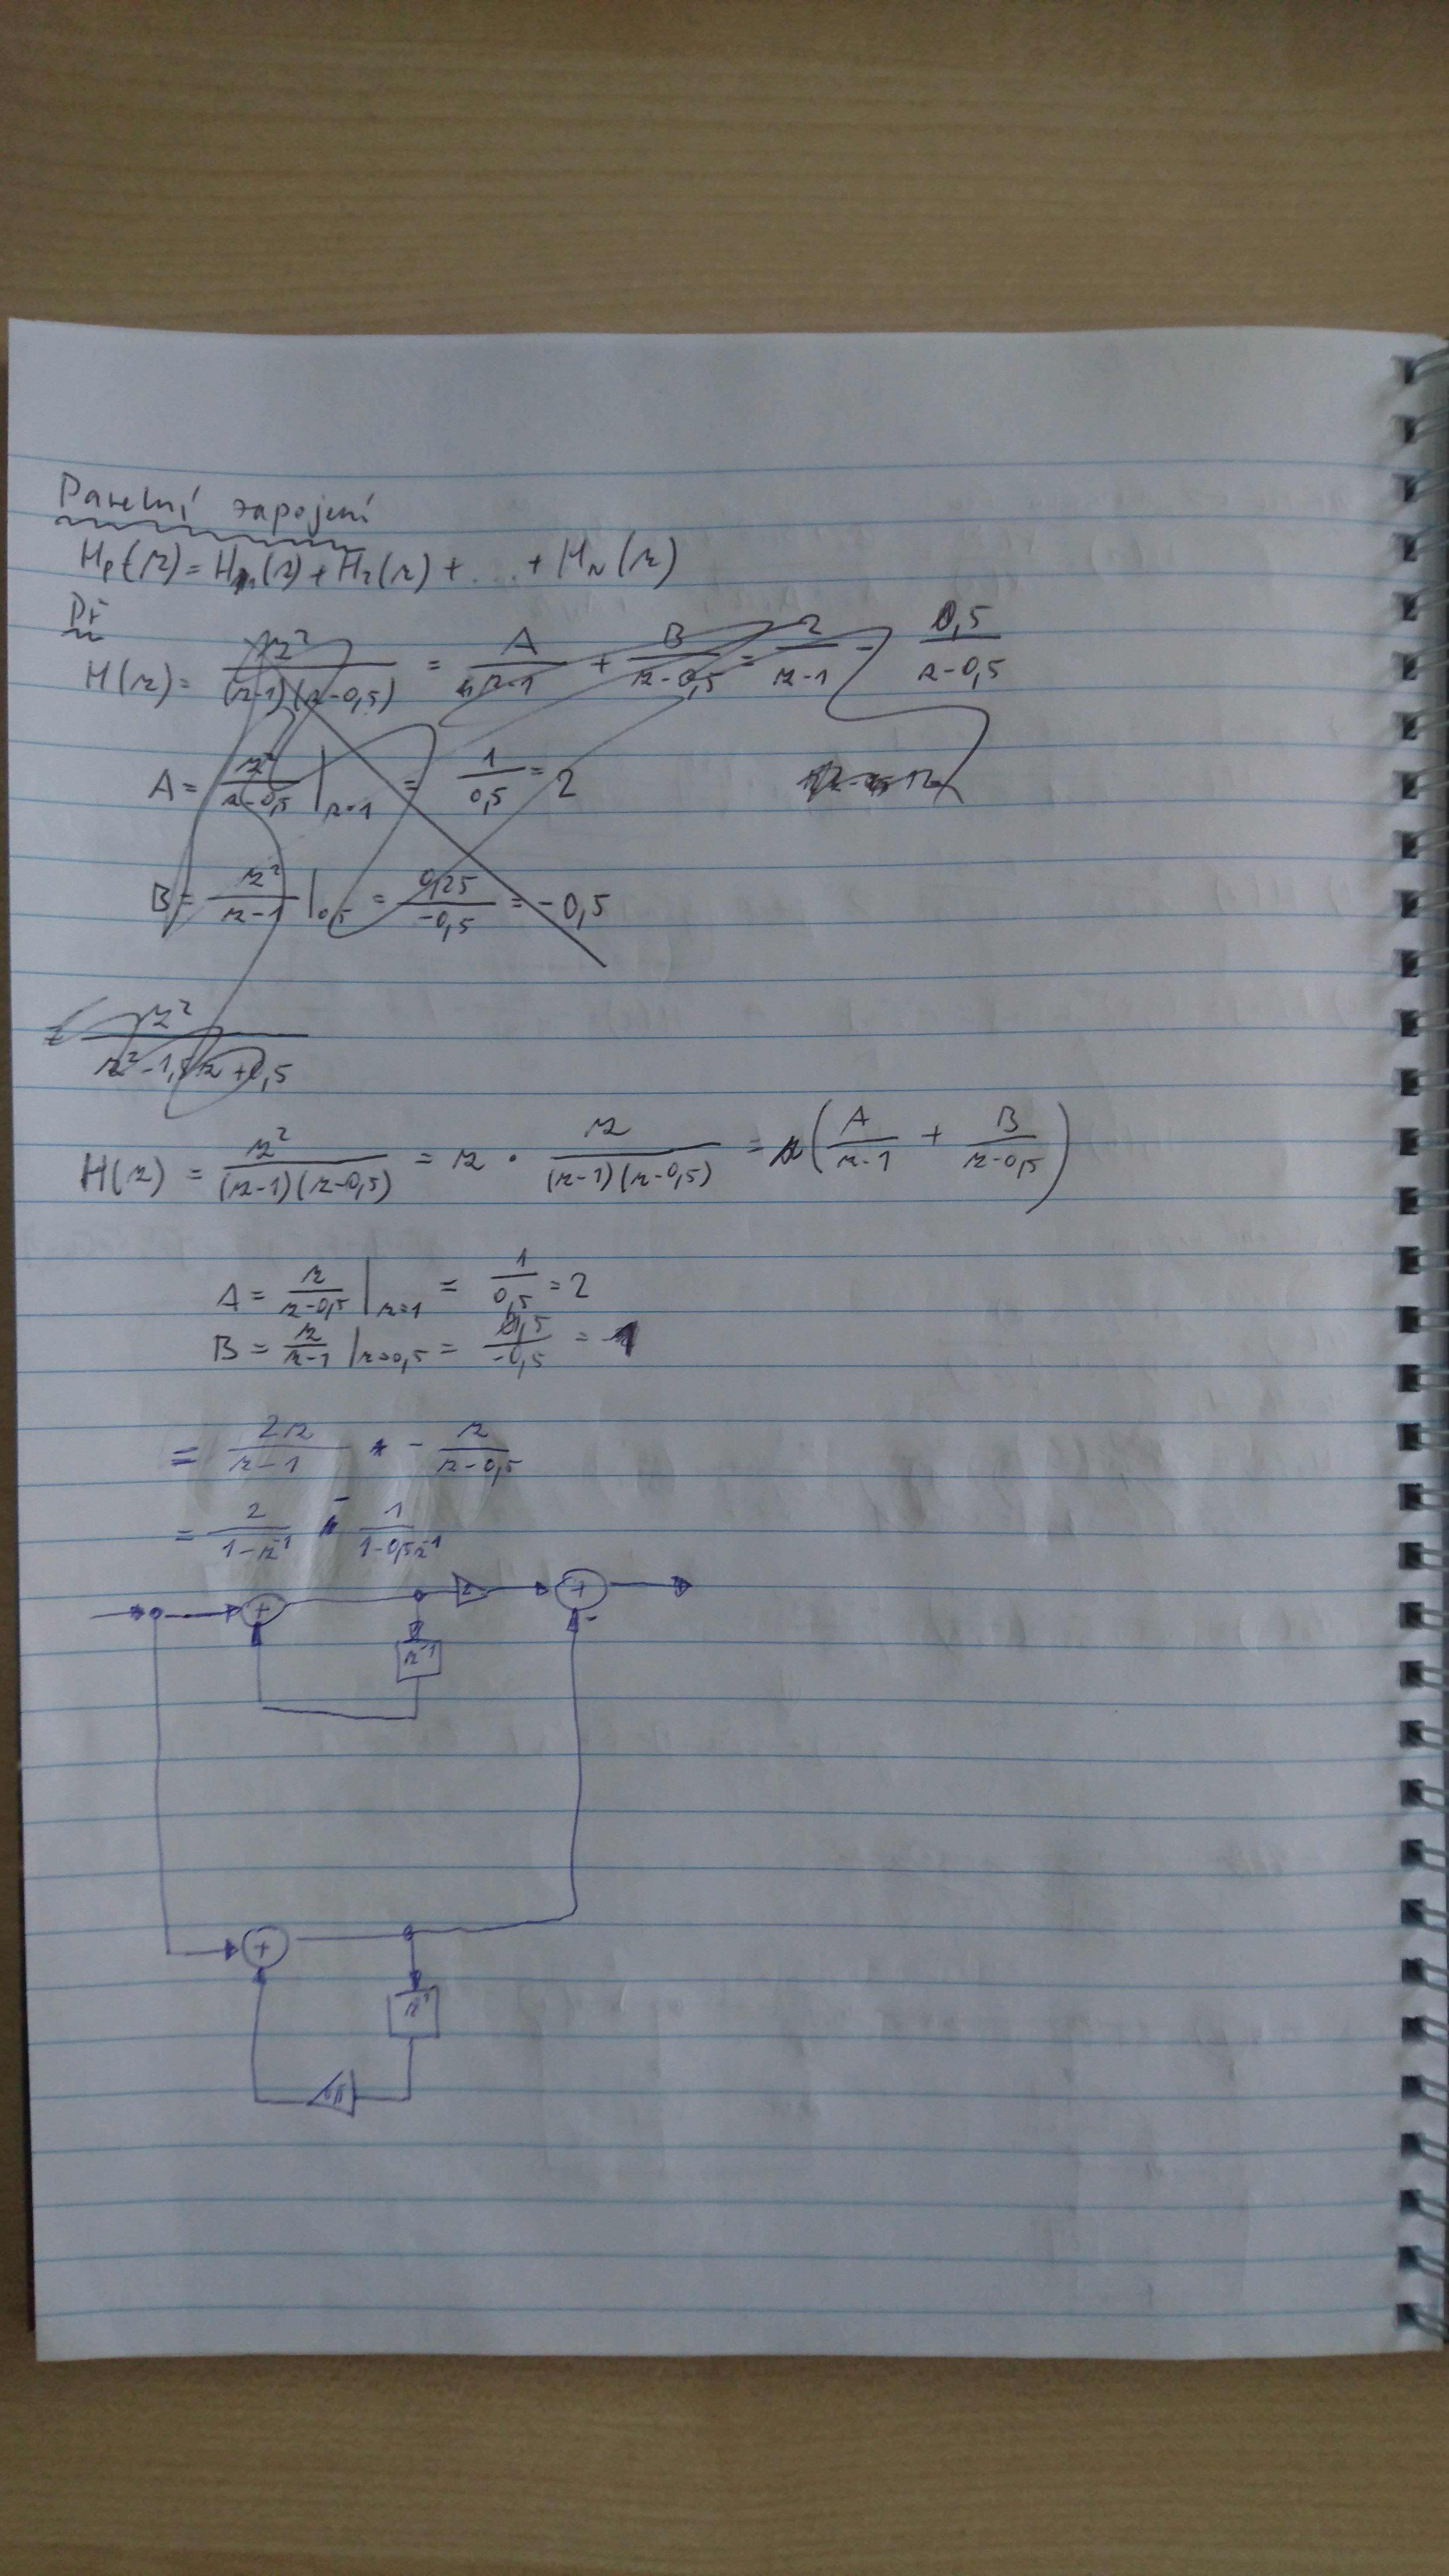 Paralelní zapojení
Hp(z) = H1(z) + H2(z) + ... + HN(z)
Př
H(z) = z²/((z-1)(z-0,5)) = A/(z-1) + B/(z-0,5) = 2/(z-1) - 0,5/(z-0,5)
A = z²/(z-0,5) |z=1 = 1/0,5 = 2
B = z²/(z-1) |0,5 = 0,25/-0,5 = -0,5
z²/(z²-1,5z+0,5)
H(z) = z²/((z-1)(z-0,5)) = z · z/((z-1)(z-0,5)) = z(A/(z-1) + B/(z-0,5))
A = z/(z-0,5) |z=1 = 1/0,5 = 2
B = z/(z-1) |z=0,5 = 0,5/-0,5 = -1
= 2z/(z-1) - z/(z-0,5)
= 2/(1-z⁻¹) - 1/(1-0,5z⁻¹)
+ 2 +
-
z⁻¹
+
z⁻¹
0,5